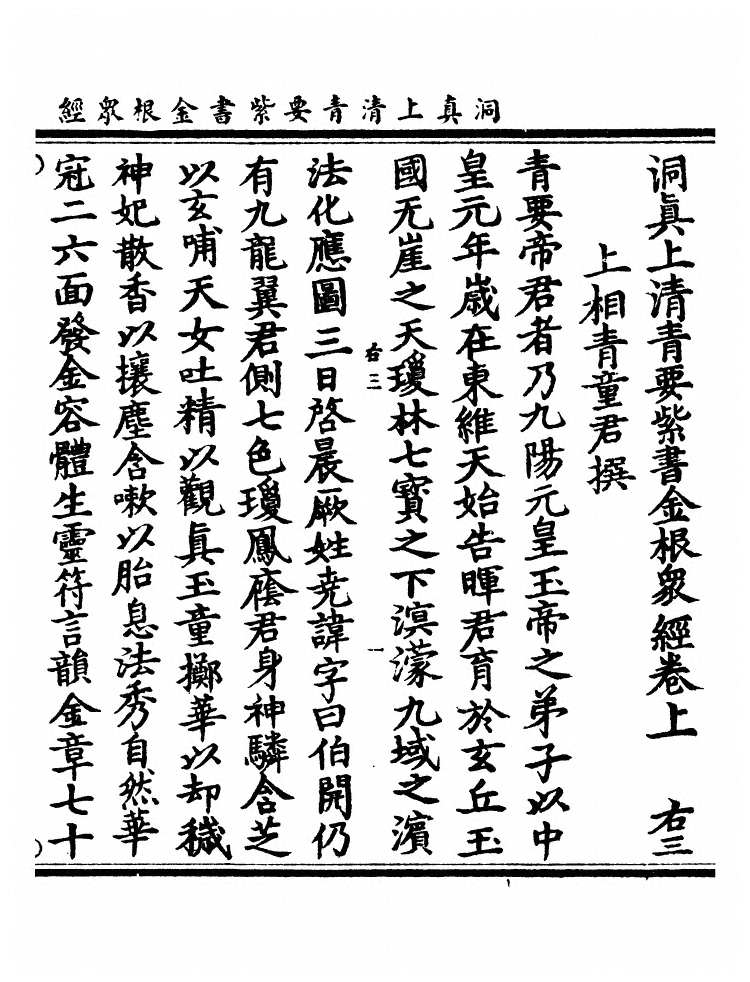 洞真上清青要紫書金根眾經
洞眞上清青要紫書金根眾經卷上 右三
上相青童君撰
青要帝君者乃九陽元皇玉帝之弟子以中
皇元年歲在東維天始告暉君育於玄丘玉
國无崖之天瓊林七寶之下溟濛九域之濱
右三 一
法化應圖三日啓晨厥姓堯諱字曰伯開仍
有九龍翼君側七色瓊鳳廕君身神驎含芝
以玄哺天女吐精以觀眞玉童擲華以却穢
神妃散香以攘塵含嗽以胎息法秀自然華
冠二六面發金容體生靈符言韻金章七十